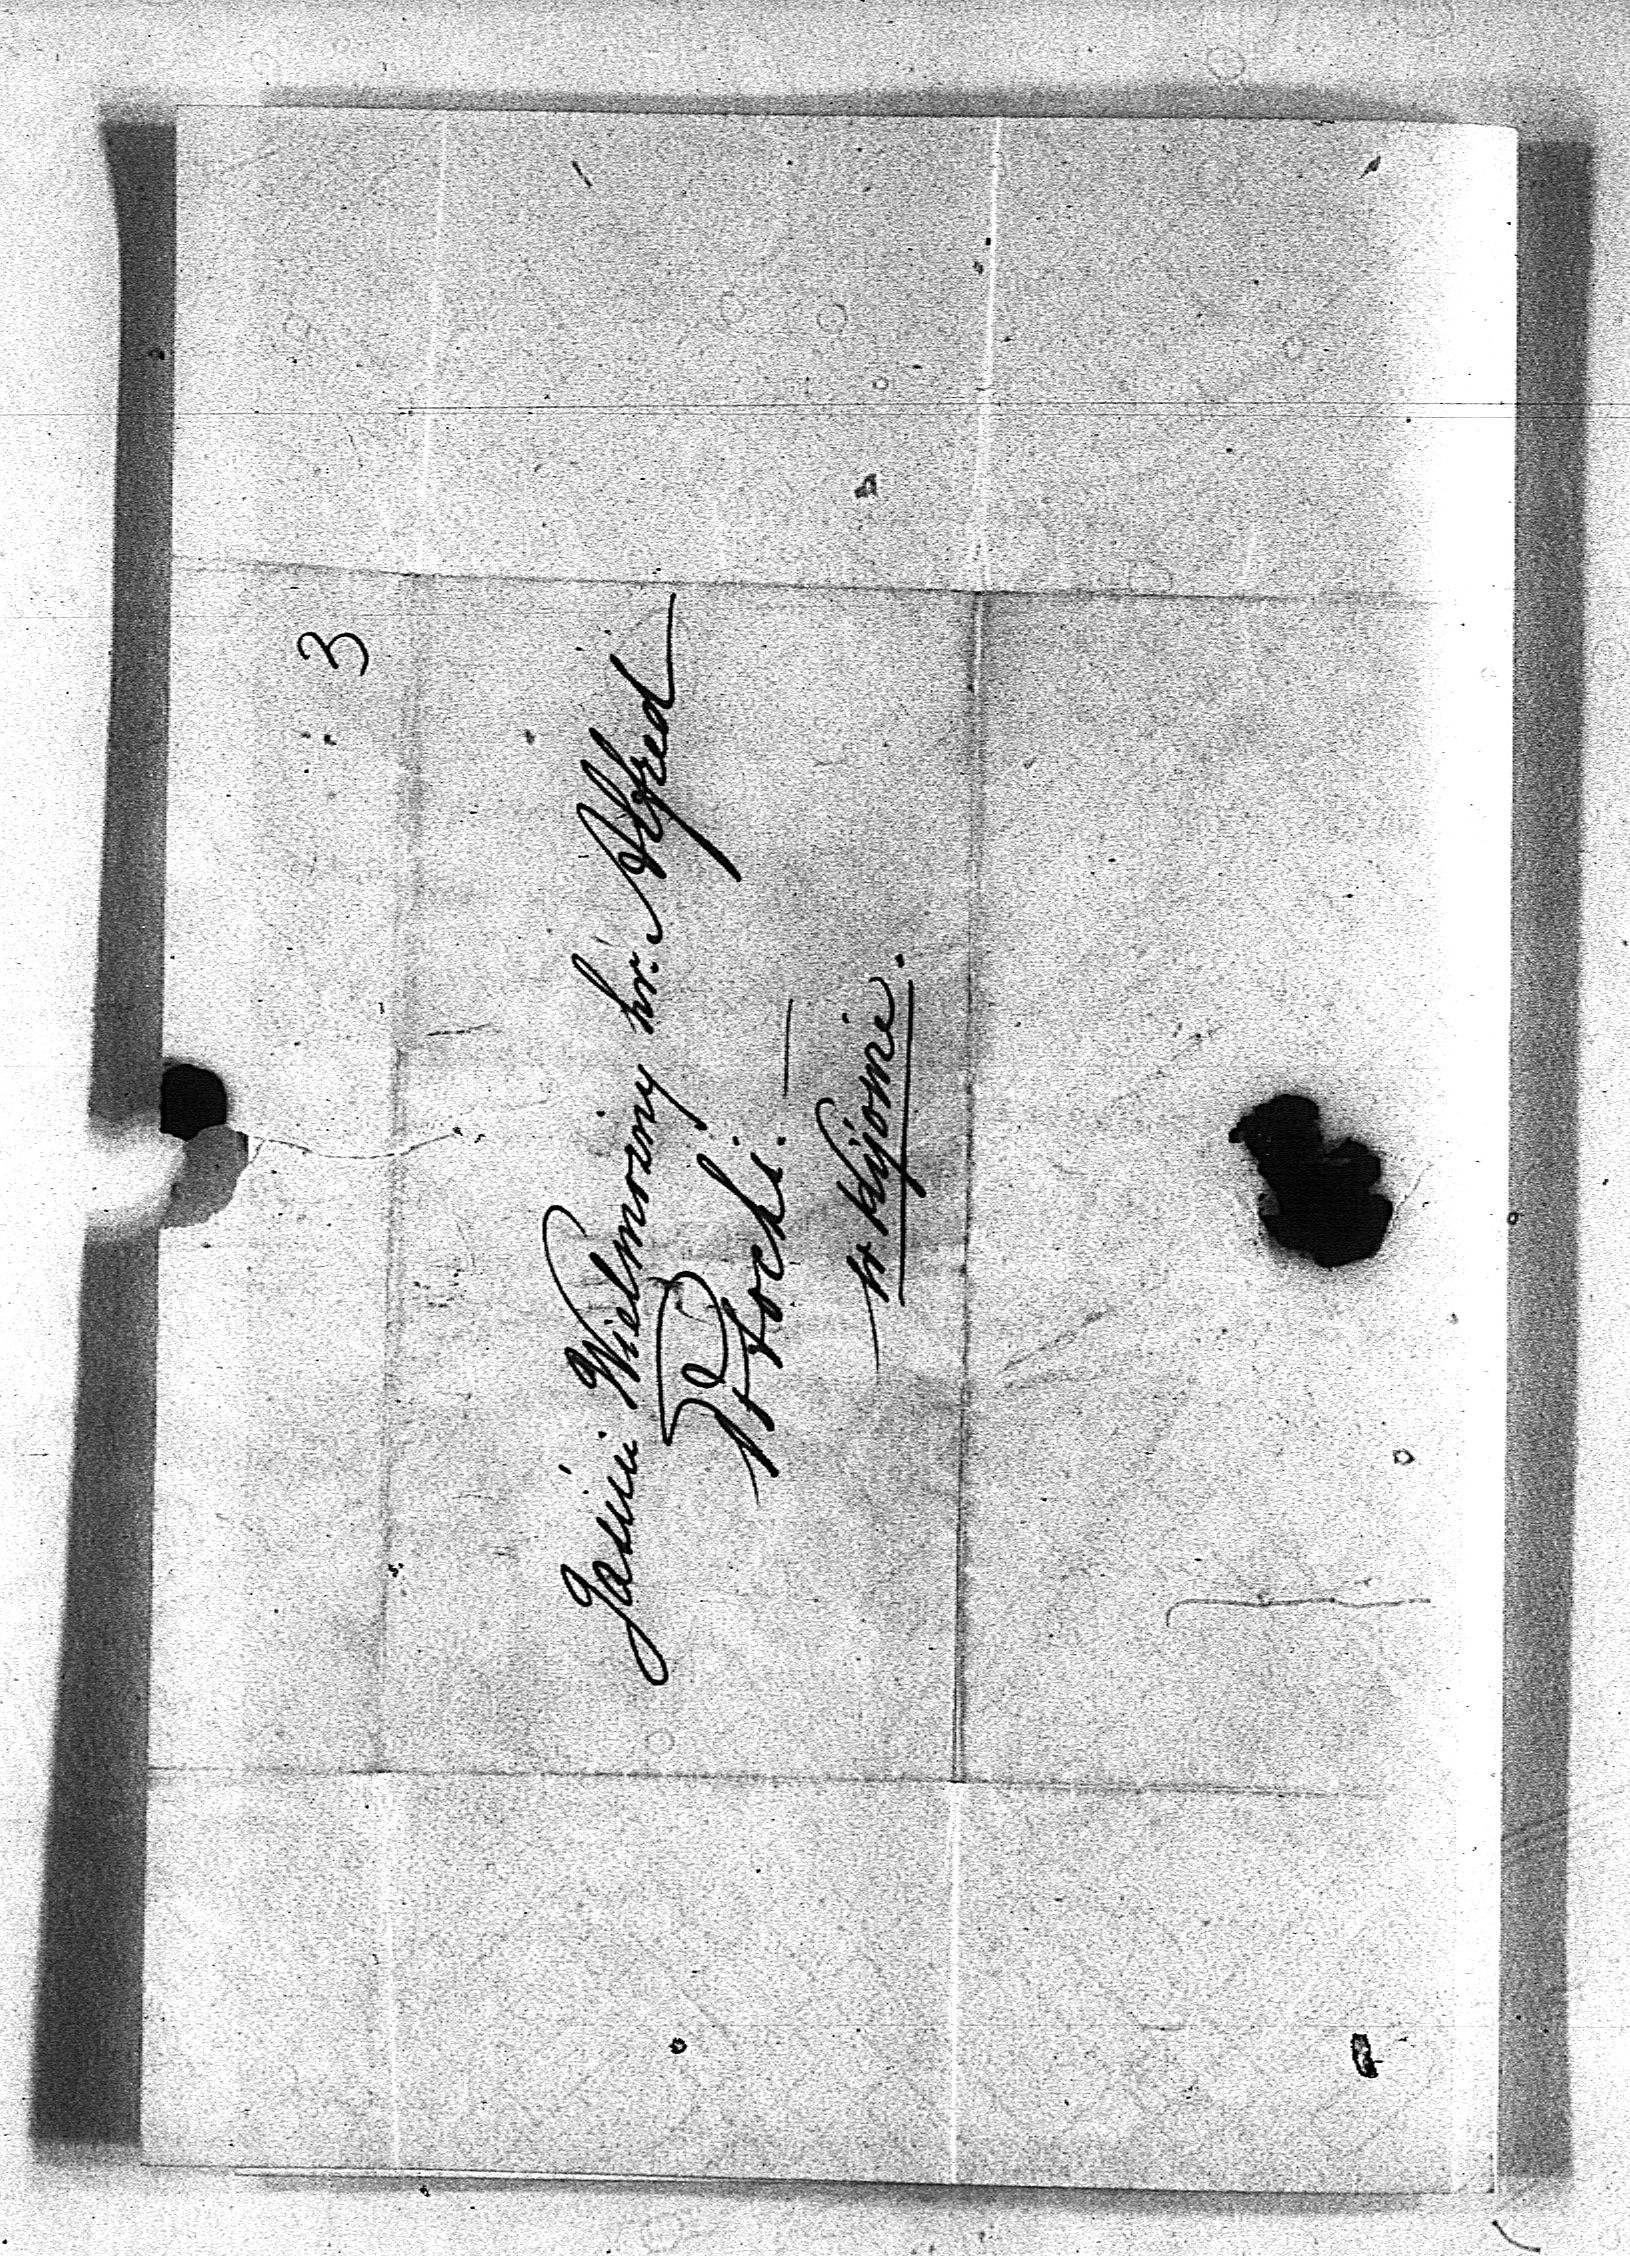 3
Jaśnie Wielmożny hr. Alfred
Potocki.
w Kijowie.